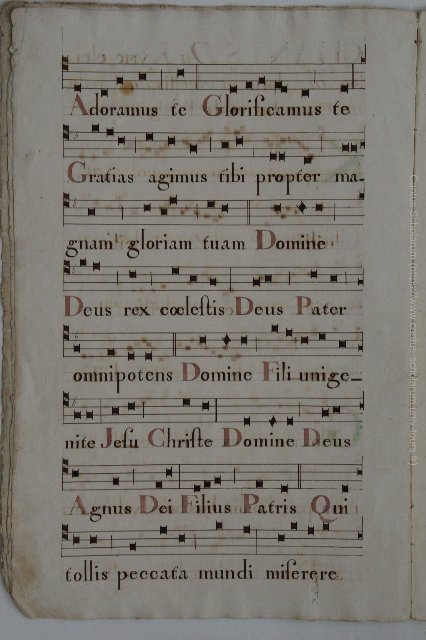 Adoramus te Glorificamus te
Gratias agimus tibi propter ma-
gnam gloriam tuam Domine
Deus rex cœleſtis Deus Pater
omnipotens Domine Fili unige-
nite Jeſu Chriſte Domine Deus
Agnus Dei Filius Patris Qui
tollis peccata mundi miſerere